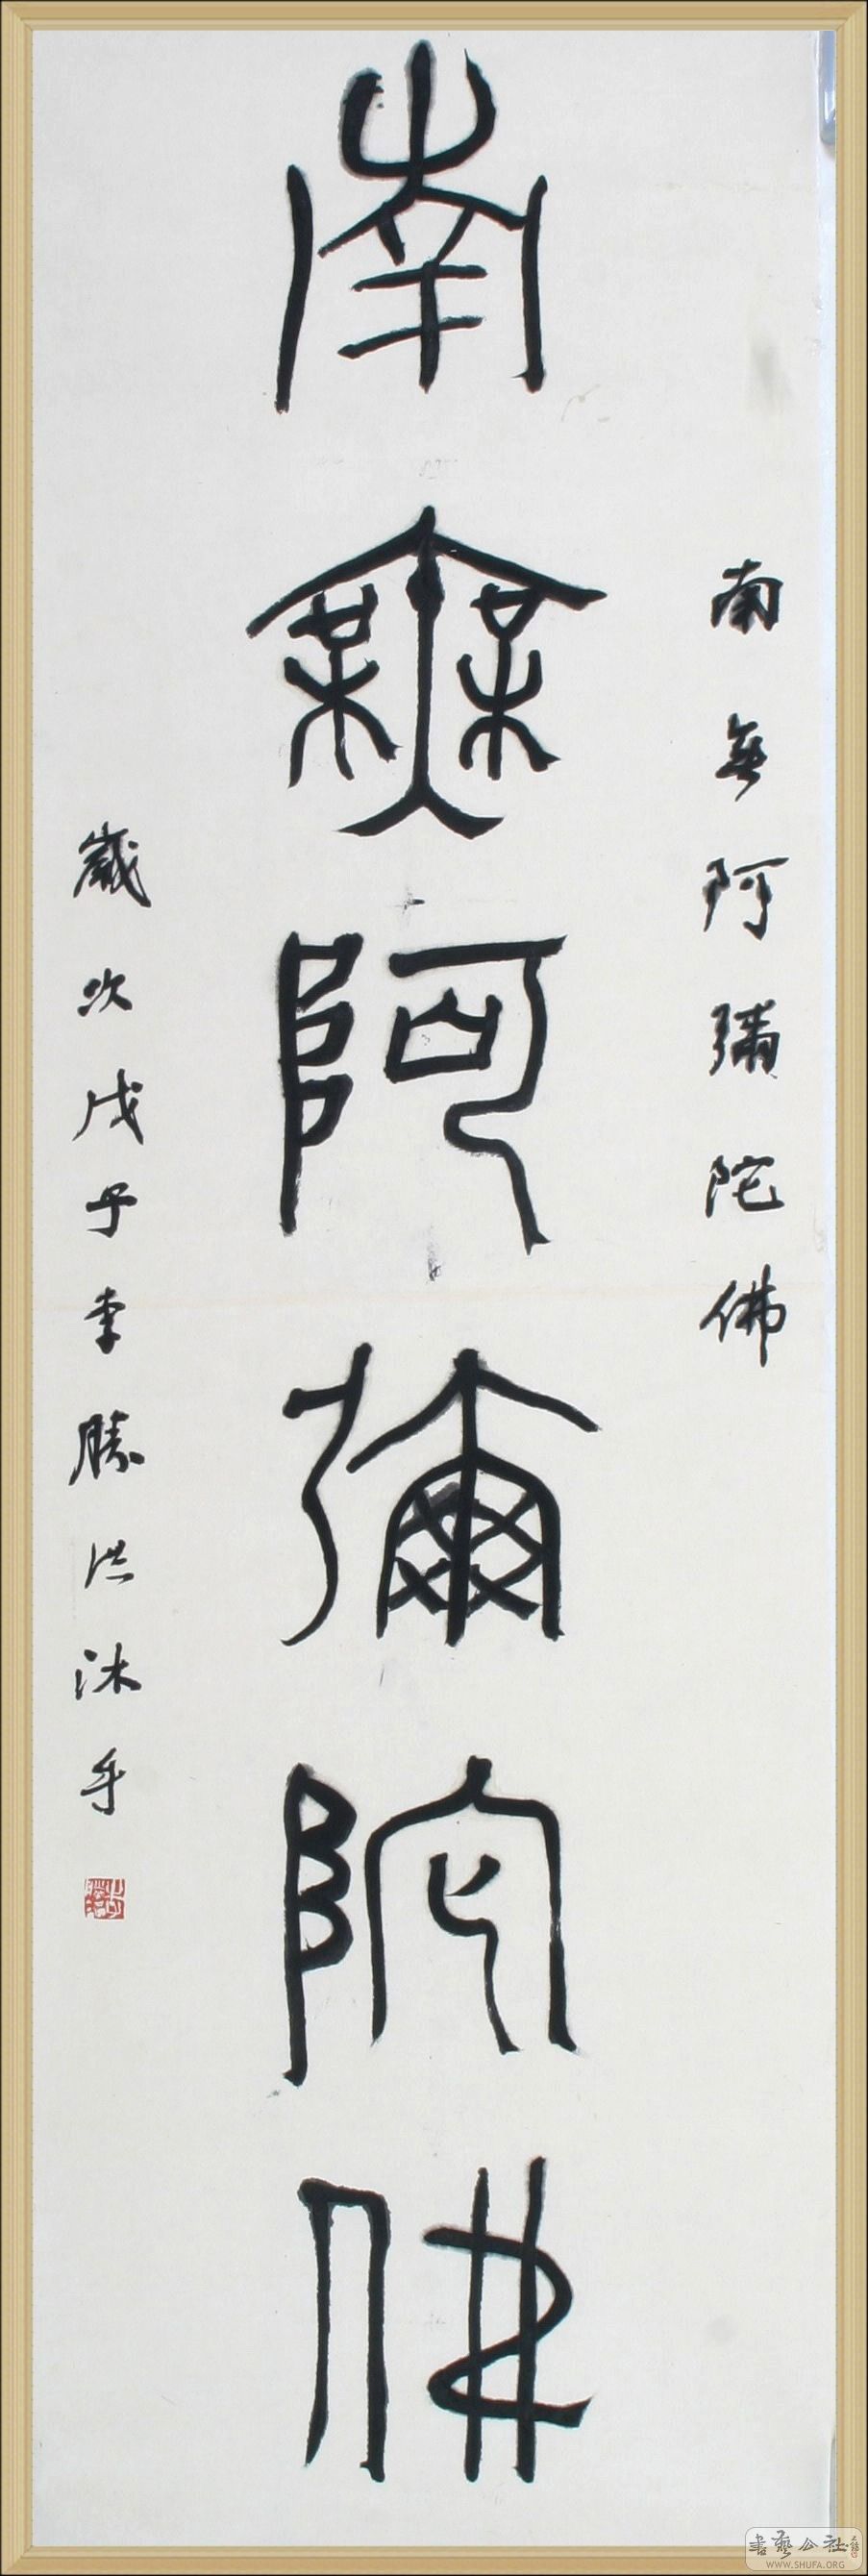 南無阿彌陀佛
南無阿彌陀佛
歲次戊子李勝洪沐手
書藝公社
WWW.SHUFA.ORG